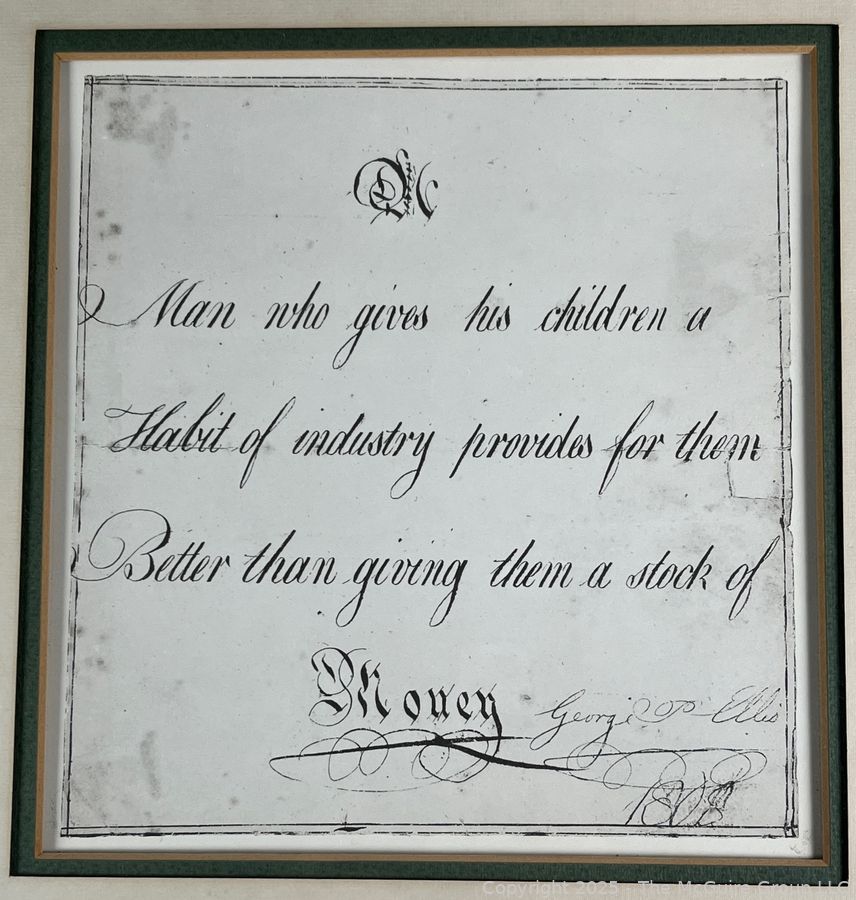 A
Man who gives his children a
Habit of industry provides for them
Better than giving them a stock of
Money
George P Ellis
Copyright 2025 - The McGuire Group LLC